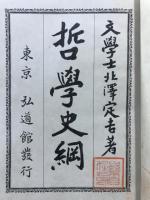 文學士北澤定吉著
哲學史綱
東京 弘道館發行